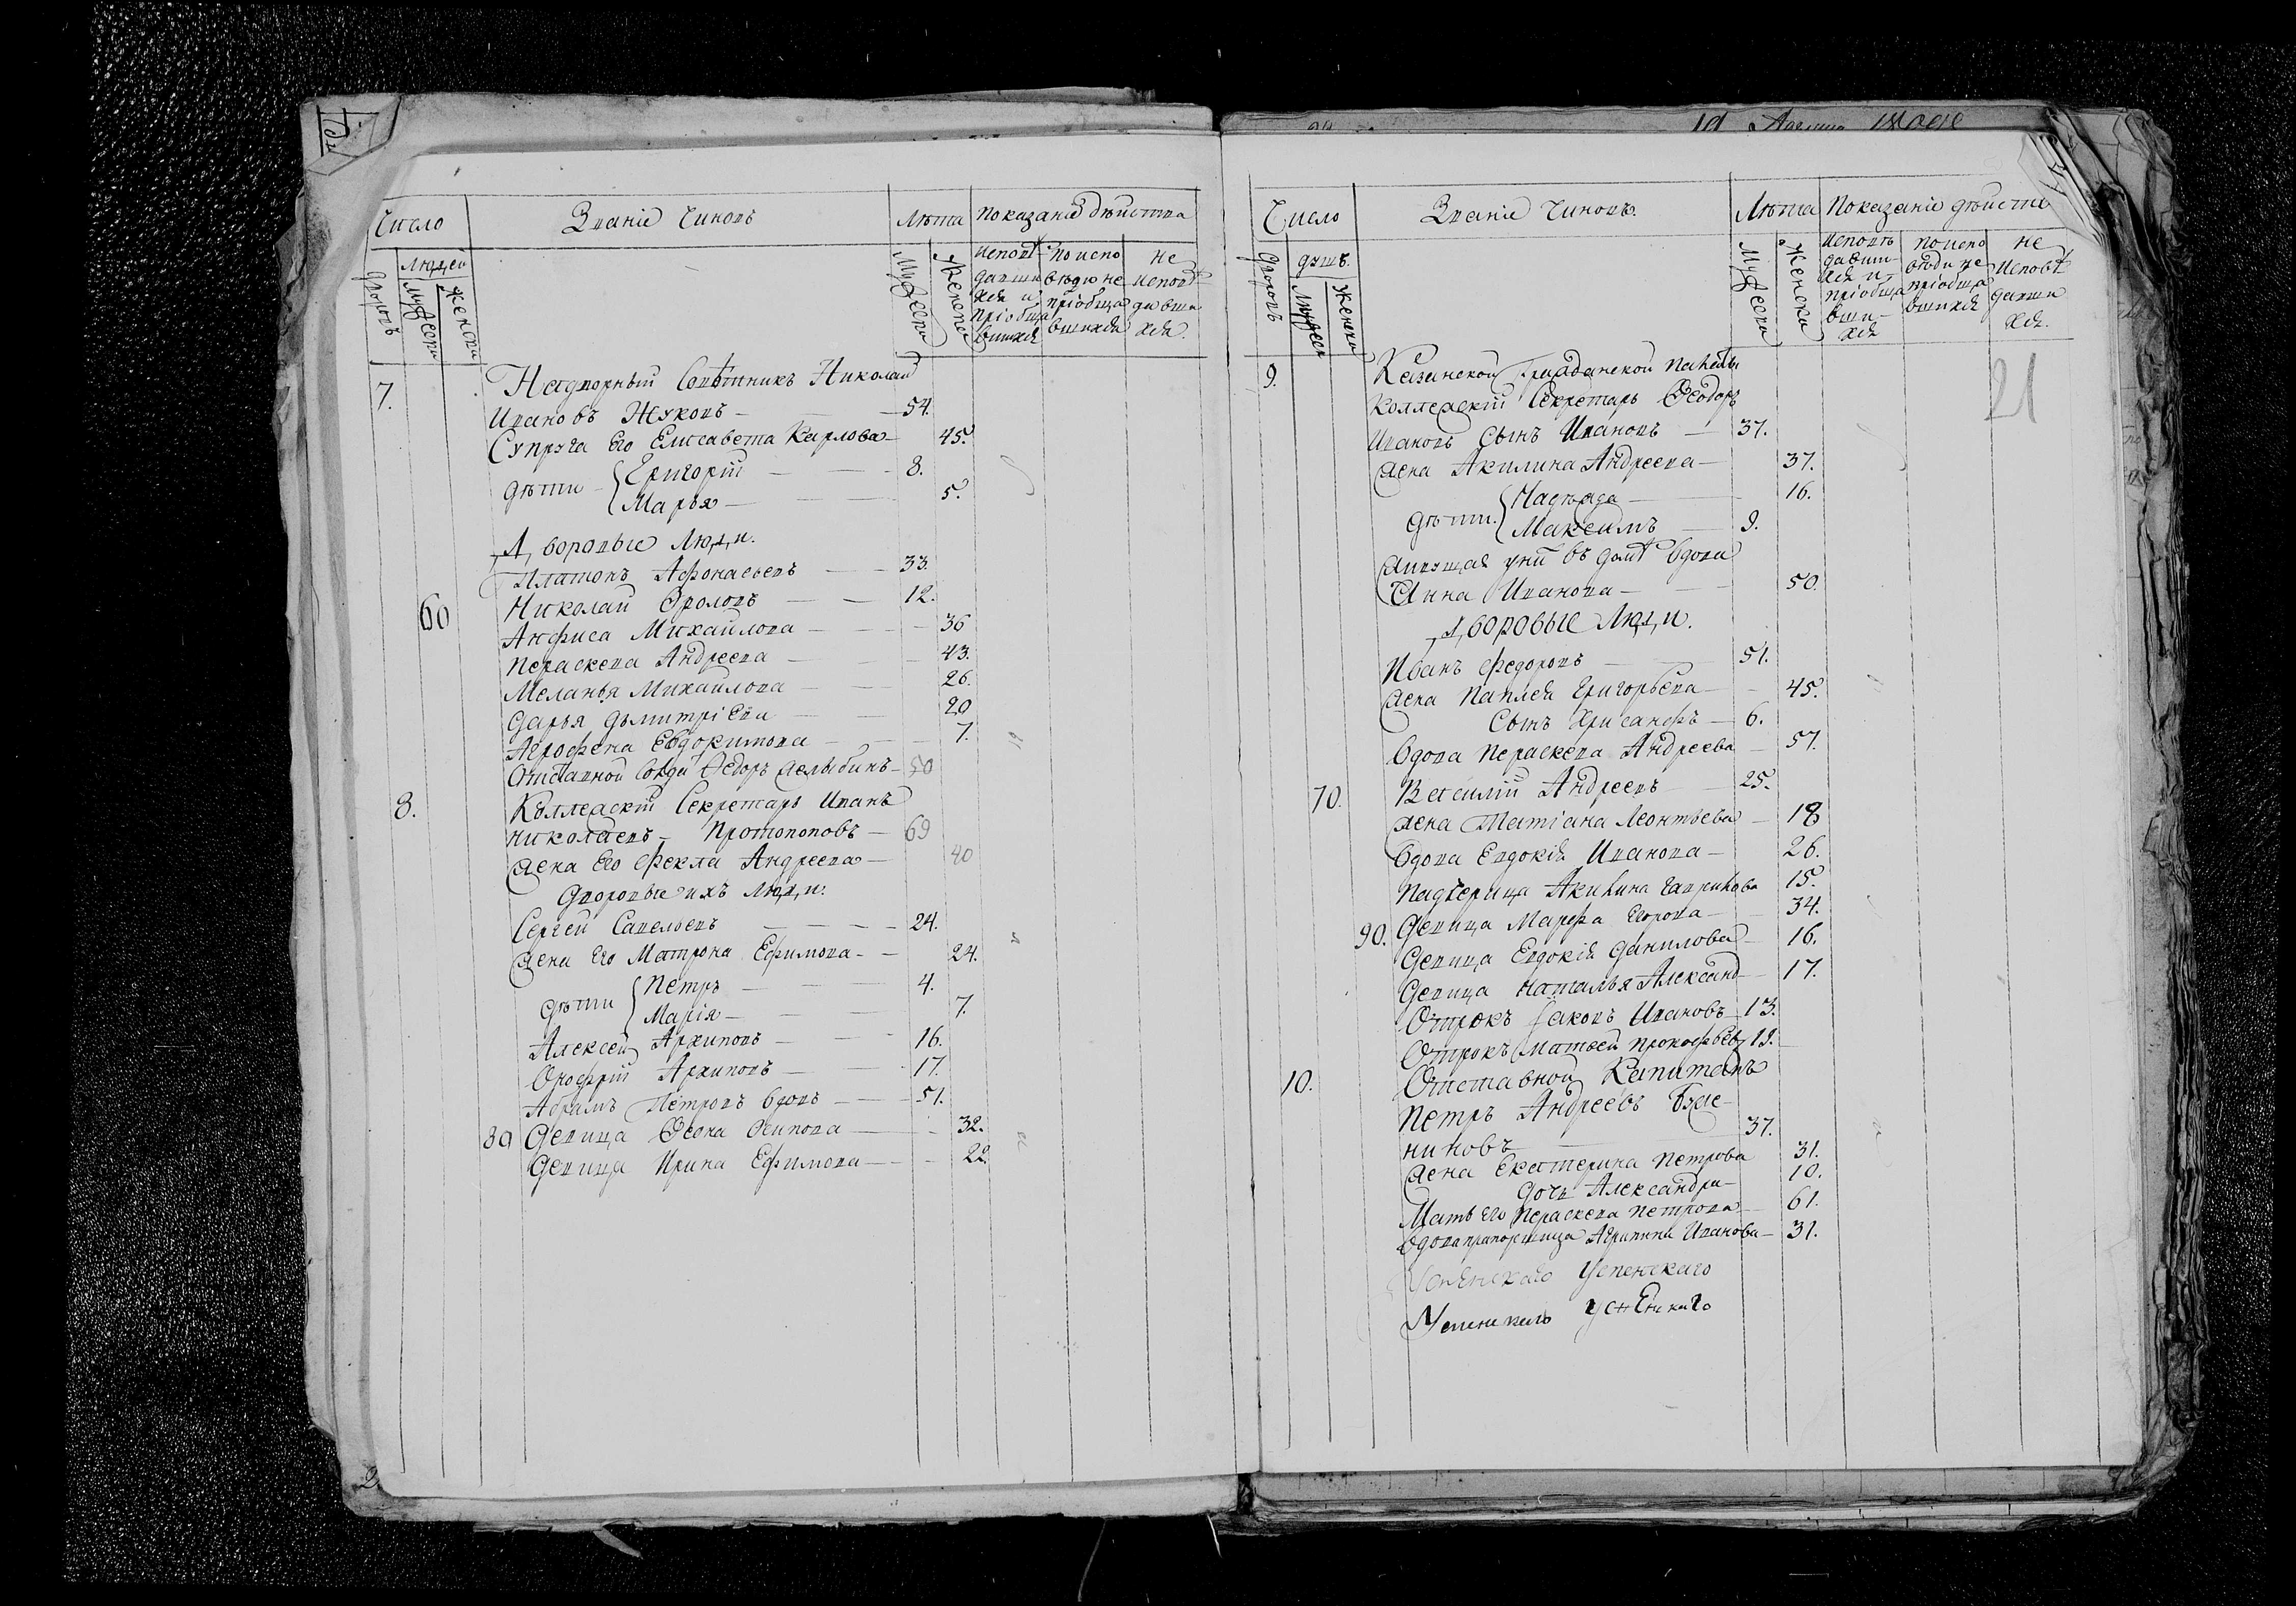 Число Званіе Чиновъ Лѣта Показаніе дѣйства
Дворовъ Людей Мужеска Женска Мужеска Женска
Исповѣ- По испо Не
давши вѣдю не исповѣ
хся и пріобща давши
пріобща вшихся хся.
вшихся
7. Надворный Совѣтникъ Николай
Ивановъ Жуковъ — 54.
Супруга Его Елисавета Карлова — 45.
Дѣти Григорій — 8.
Марья — 5.
Дворовые Люди.
Платонъ Афонасьевъ — 33.
60 Николай Фроловъ — 12.
Анфиса Михайлова — 36
Пераскева Андреева — 43.
Меланья Михайлова — 26.
Дарья Дьмитріева — 20
Агрофена Евдокимова — 7.
Федоръ 50
8. Коллежскій Секретарь Иванъ
Николаевъ Протопоповъ — 69
Жена Его Фекла Андреева — 40
Дворовые ихъ Люди.
Сергей Савельевъ — 24.
Жена Его Матрона Ефимова — 24.
Дѣти Петръ — 4.
Марія — 7.
Алексей Архиповъ — 16.
Онофрій Архиповъ — 17.
Абрамъ Петровъ вдовъ — 51.
80 Девица Осипова — 32.
Девица Ирина Ефимова — 22.
Число Званіе Чиновъ. Лѣта Показаніе дѣйства
Дворовъ душъ. Мужеска Женска Мужеска Женска
Исповѣ По испо Не
давши- вѣди не Исповѣ
хся и- пріобща давши
пріобща вшихся хся.
вши-
хся
21
9. Казанской Гражданской Палаты
Коллежскій Секретарь Ѳеодоръ
Ивановъ Сынъ Ивановъ — 37.
Жена Акилина Андреева — 37.
Дѣти. Надежда — 16.
Максимъ — 9.
Живущая у нихъ въ домѣ вдова
Анна Иванова — 50.
Дворовые Люди.
Иванъ Федоровъ — 51.
Жена Григорьева — 45.
Сынъ Хрисанфъ — 6.
Вдова Пераскева Андреева — 57.
70. Василій Андреевъ — 25.
Жена Матіана Леонтьева — 18
Вдова Евдокія Иванова — 26.
Падчерица Акилина Гаврилова 15.
90. Девица Марфа Егорова — 34.
Девица Евдокія Данилова — 16.
Девица Наталья Александ — 17.
Отрокъ Іаковъ Ивановъ — 13.
Отрокъ Матвей Прокофьевъ 12.
10. Отставной Капитанъ
Петръ Андреевъ
37.
Жена Екатерина Петрова 31.
Дочь Александра — 10.
Мать Его Пераскева Петрова — 61.
Вдова прапорщица Агрипина Иванова — 31.
Успенскаго Успенскаго
Успенскаго